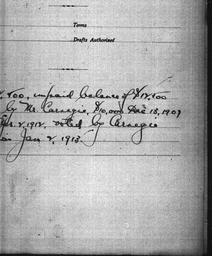 Terms
Drafts Authorized
500, unpaid balance of $12,500
by Mr. Carnegie, $10,000 Dec 18, 1907
2, 1912, voted by Carnegie
on Jan 2, 1913.